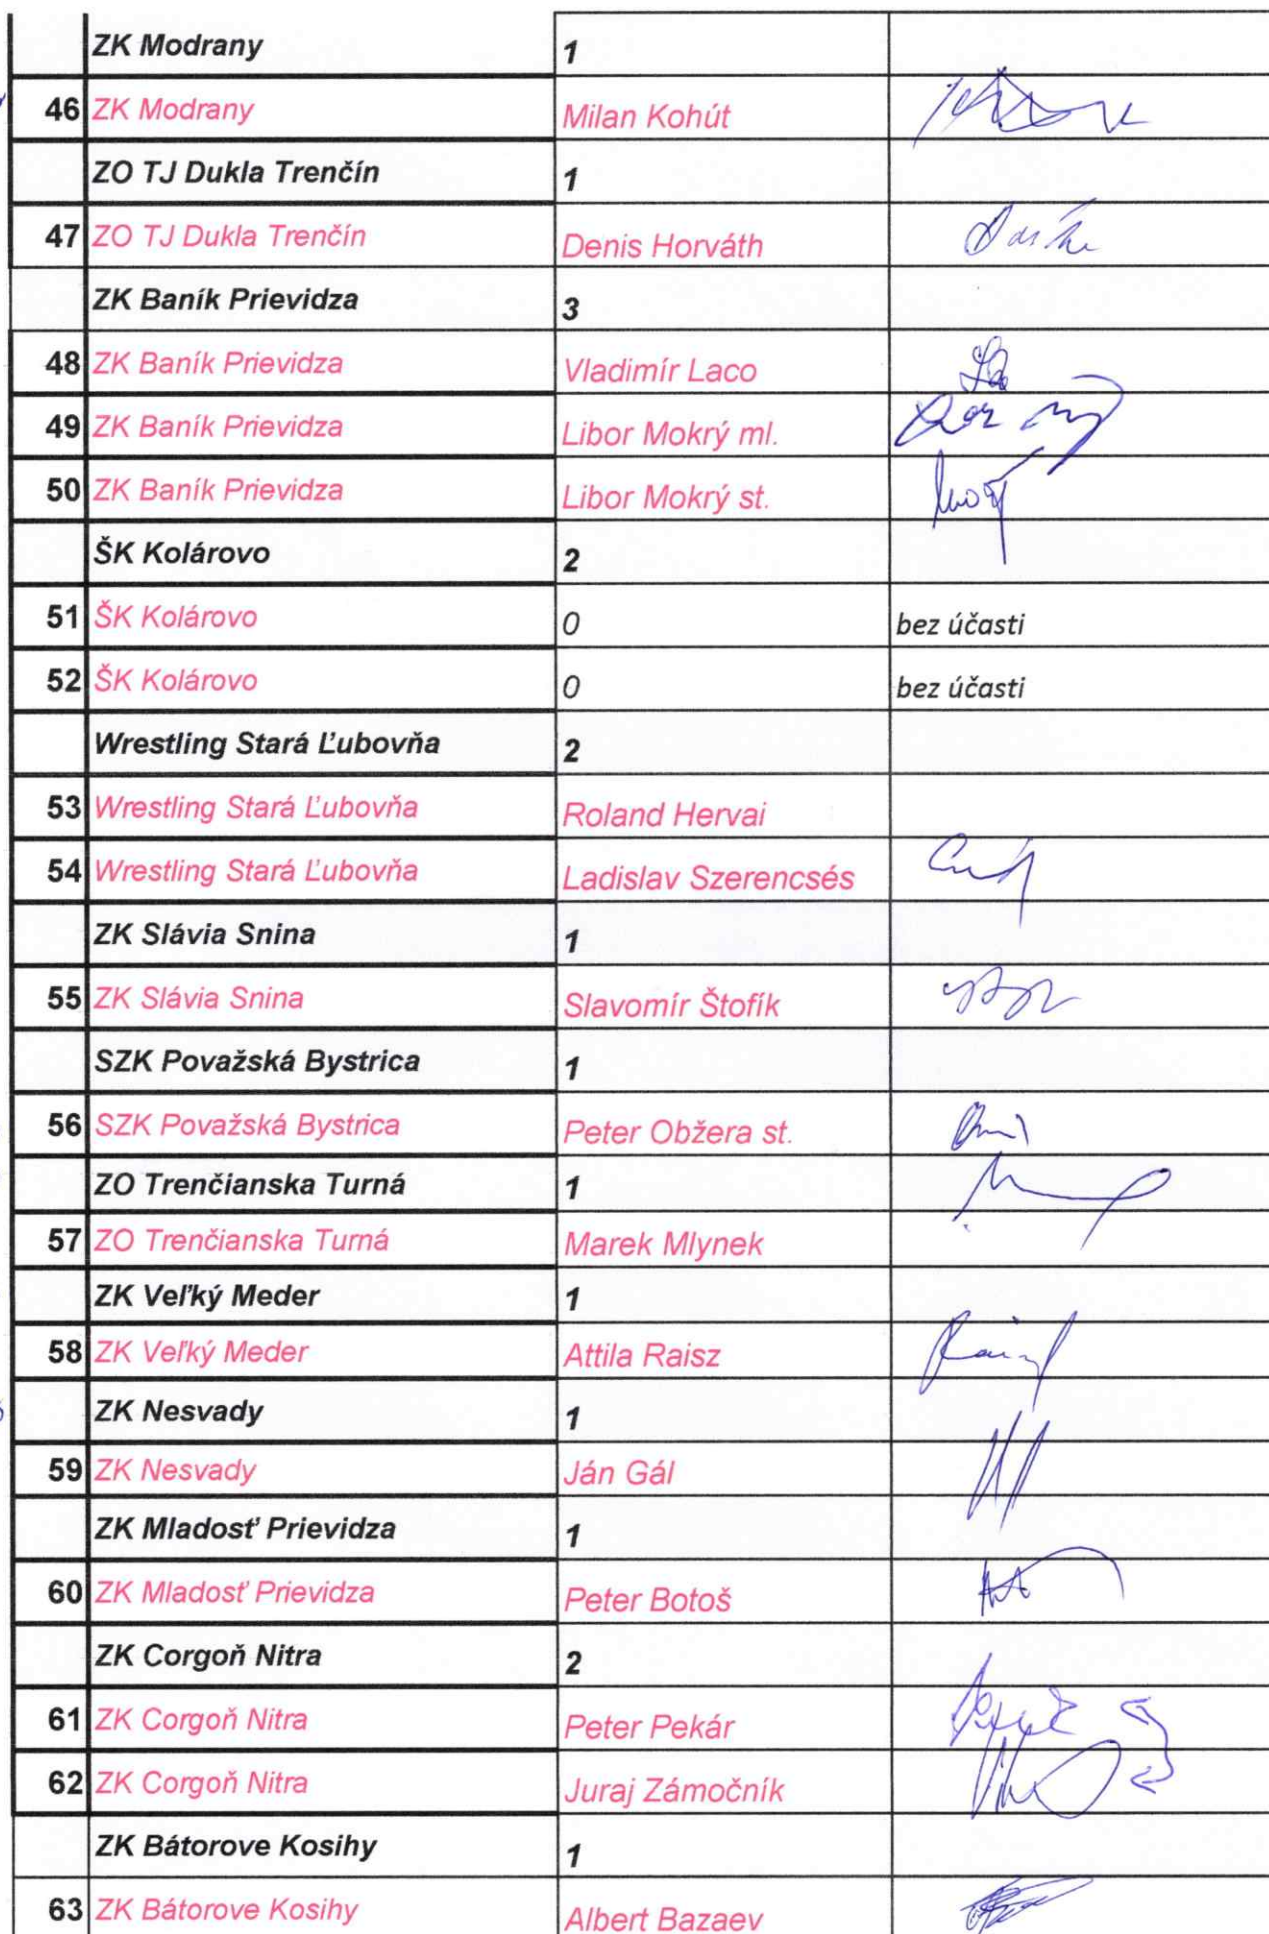 ZK Modrany 1
46 ZK Modrany Milan Kohút
ZO TJ Dukla Trenčín 1
47 ZO TJ Dukla Trenčín Denis Horváth
ZK Baník Prievidza 3
48 ZK Baník Prievidza Vladimír Laco
49 ZK Baník Prievidza Libor Mokrý ml.
50 ZK Baník Prievidza Libor Mokrý st.
ŠK Kolárovo 2
51 ŠK Kolárovo 0 bez účasti
52 ŠK Kolárovo 0 bez účasti
Wrestling Stará Ľubovňa 2
53 Wrestling Stará Ľubovňa Roland Hervai
54 Wrestling Stará Ľubovňa Ladislav Szerencsés
ZK Slávia Snina 1
55 ZK Slávia Snina Slavomír Štofík
SZK Považská Bystrica 1
56 SZK Považská Bystrica Peter Obžera st.
ZO Trenčianska Turná 1
57 ZO Trenčianska Turná Marek Mlynek
ZK Veľký Meder 1
58 ZK Veľký Meder Attila Raisz
ZK Nesvady 1
59 ZK Nesvady Ján Gál
ZK Mladosť Prievidza 1
60 ZK Mladosť Prievidza Peter Botoš
ZK Corgoň Nitra 2
61 ZK Corgoň Nitra Peter Pekár
62 ZK Corgoň Nitra Juraj Zámočník
ZK Bátorove Kosihy 1
63 ZK Bátorove Kosihy Albert Bazaev